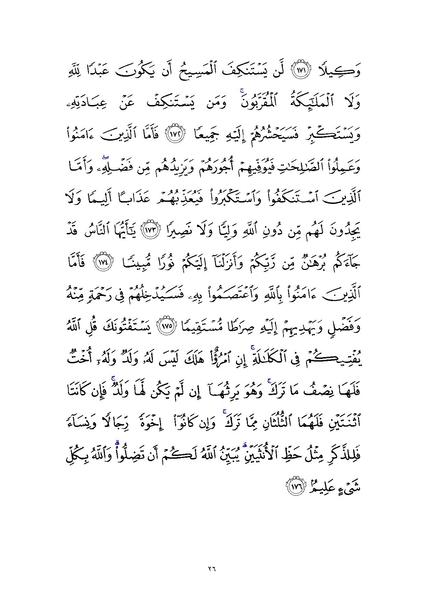 وَكِيلًا ﴿١٧١﴾ لَّن يَسْتَنكِفَ الْمَسِيحُ أَن يَكُونَ عَبْدًا لِّلَّهِ
وَلَا الْمَلَٰٓئِكَةُ الْمُقَرَّبُونَ ۚ وَمَن يَسْتَنكِفْ عَنْ عِبَادَتِهِۦ
وَيَسْتَكْبِرْ فَسَيَحْشُرُهُمْ إِلَيْهِ جَمِيعًا ﴿١٧٢﴾ فَأَمَّا الَّذِينَ ءَامَنُوا۟
وَعَمِلُوا۟ الصَّٰلِحَٰتِ فَيُوَفِّيهِمْ أُجُورَهُمْ وَيَزِيدُهُم مِّن فَضْلِهِۦ ۖ وَأَمَّا
الَّذِينَ اسْتَنكَفُوا۟ وَاسْتَكْبَرُوا۟ فَيُعَذِّبُهُمْ عَذَابًا أَلِيمًا وَلَا
يَجِدُونَ لَهُم مِّن دُونِ اللَّهِ وَلِيًّا وَلَا نَصِيرًا ﴿١٧٣﴾ يَٰٓأَيُّهَا النَّاسُ قَدْ
جَآءَكُم بُرْهَٰنٌ مِّن رَّبِّكُمْ وَأَنزَلْنَآ إِلَيْكُمْ نُورًا مُّبِينًا ﴿١٧٤﴾ فَأَمَّا
الَّذِينَ ءَامَنُوا۟ بِاللَّهِ وَاعْتَصَمُوا۟ بِهِۦ فَسَيُدْخِلُهُمْ فِى رَحْمَةٍ مِّنْهُ
وَفَضْلٍ وَيَهْدِيهِمْ إِلَيْهِ صِرَٰطًا مُّسْتَقِيمًا ﴿١٧٥﴾ يَسْتَفْتُونَكَ قُلِ اللَّهُ
يُفْتِيكُمْ فِى الْكَلَٰلَةِ ۚ إِنِ امْرُؤٌا۟ هَلَكَ لَيْسَ لَهُۥ وَلَدٌ وَلَهُۥٓ أُخْتٌ
فَلَهَا نِصْفُ مَا تَرَكَ ۚ وَهُوَ يَرِثُهَآ إِن لَّمْ يَكُن لَّهَا وَلَدٌ ۚ فَإِن كَانَتَا
اثْنَتَيْنِ فَلَهُمَا الثُّلُثَانِ مِمَّا تَرَكَ ۚ وَإِن كَانُوٓا۟ إِخْوَةً رِّجَالًا وَنِسَآءً
فَلِلذَّكَرِ مِثْلُ حَظِّ الْأُنثَيَيْنِ ۗ يُبَيِّنُ اللَّهُ لَكُمْ أَن تَضِلُّوا۟ ۗ وَاللَّهُ بِكُلِّ
شَىْءٍ عَلِيمٌۢ ﴿١٧٦﴾
٢٦